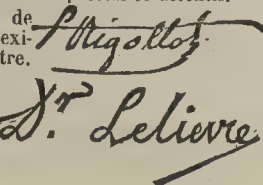 de
exi-
tre.
Rigollot
Dr. Lelievre